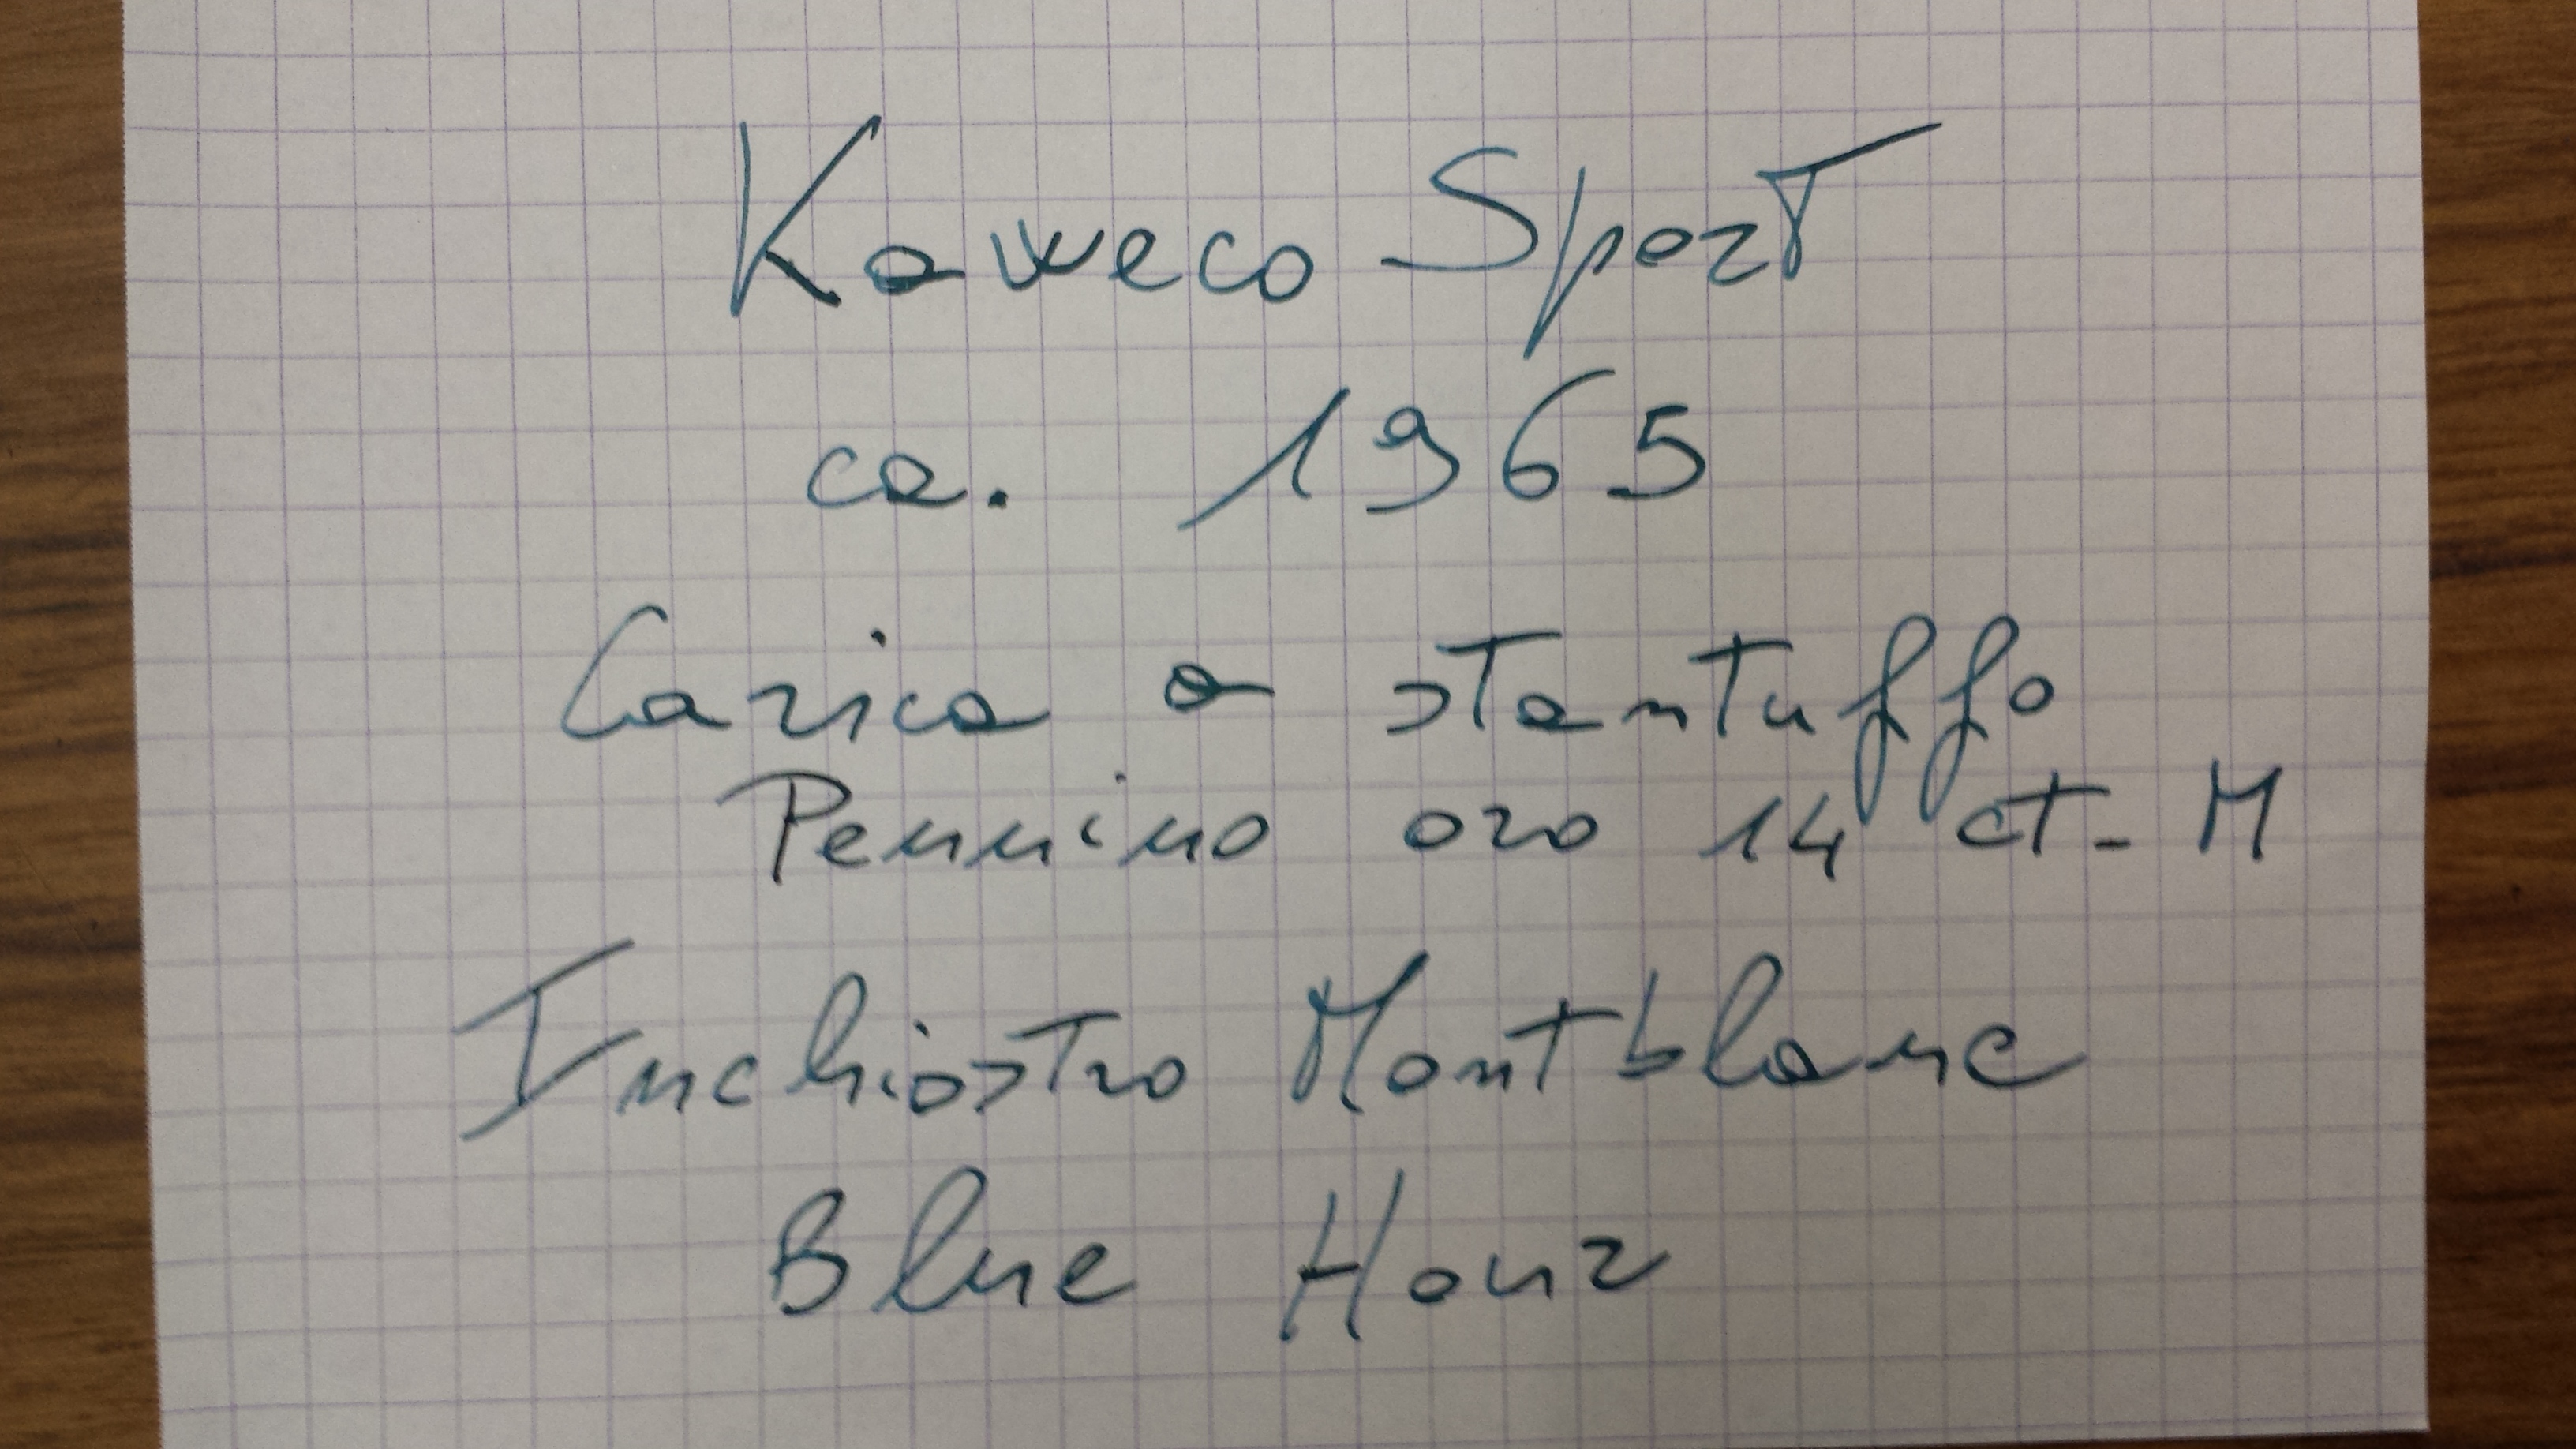 Kaweco Sport
ca. 1965
Carica a stantuffo
Pennino oro 14 ct - M
Inchiostro Montblanc
Blue Hour